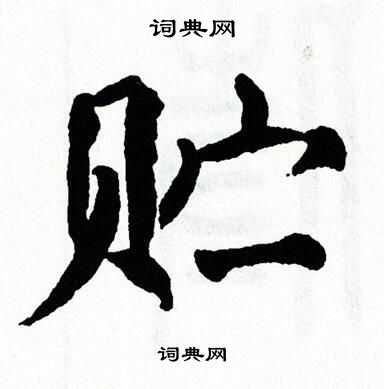 词典网
贮
词典网